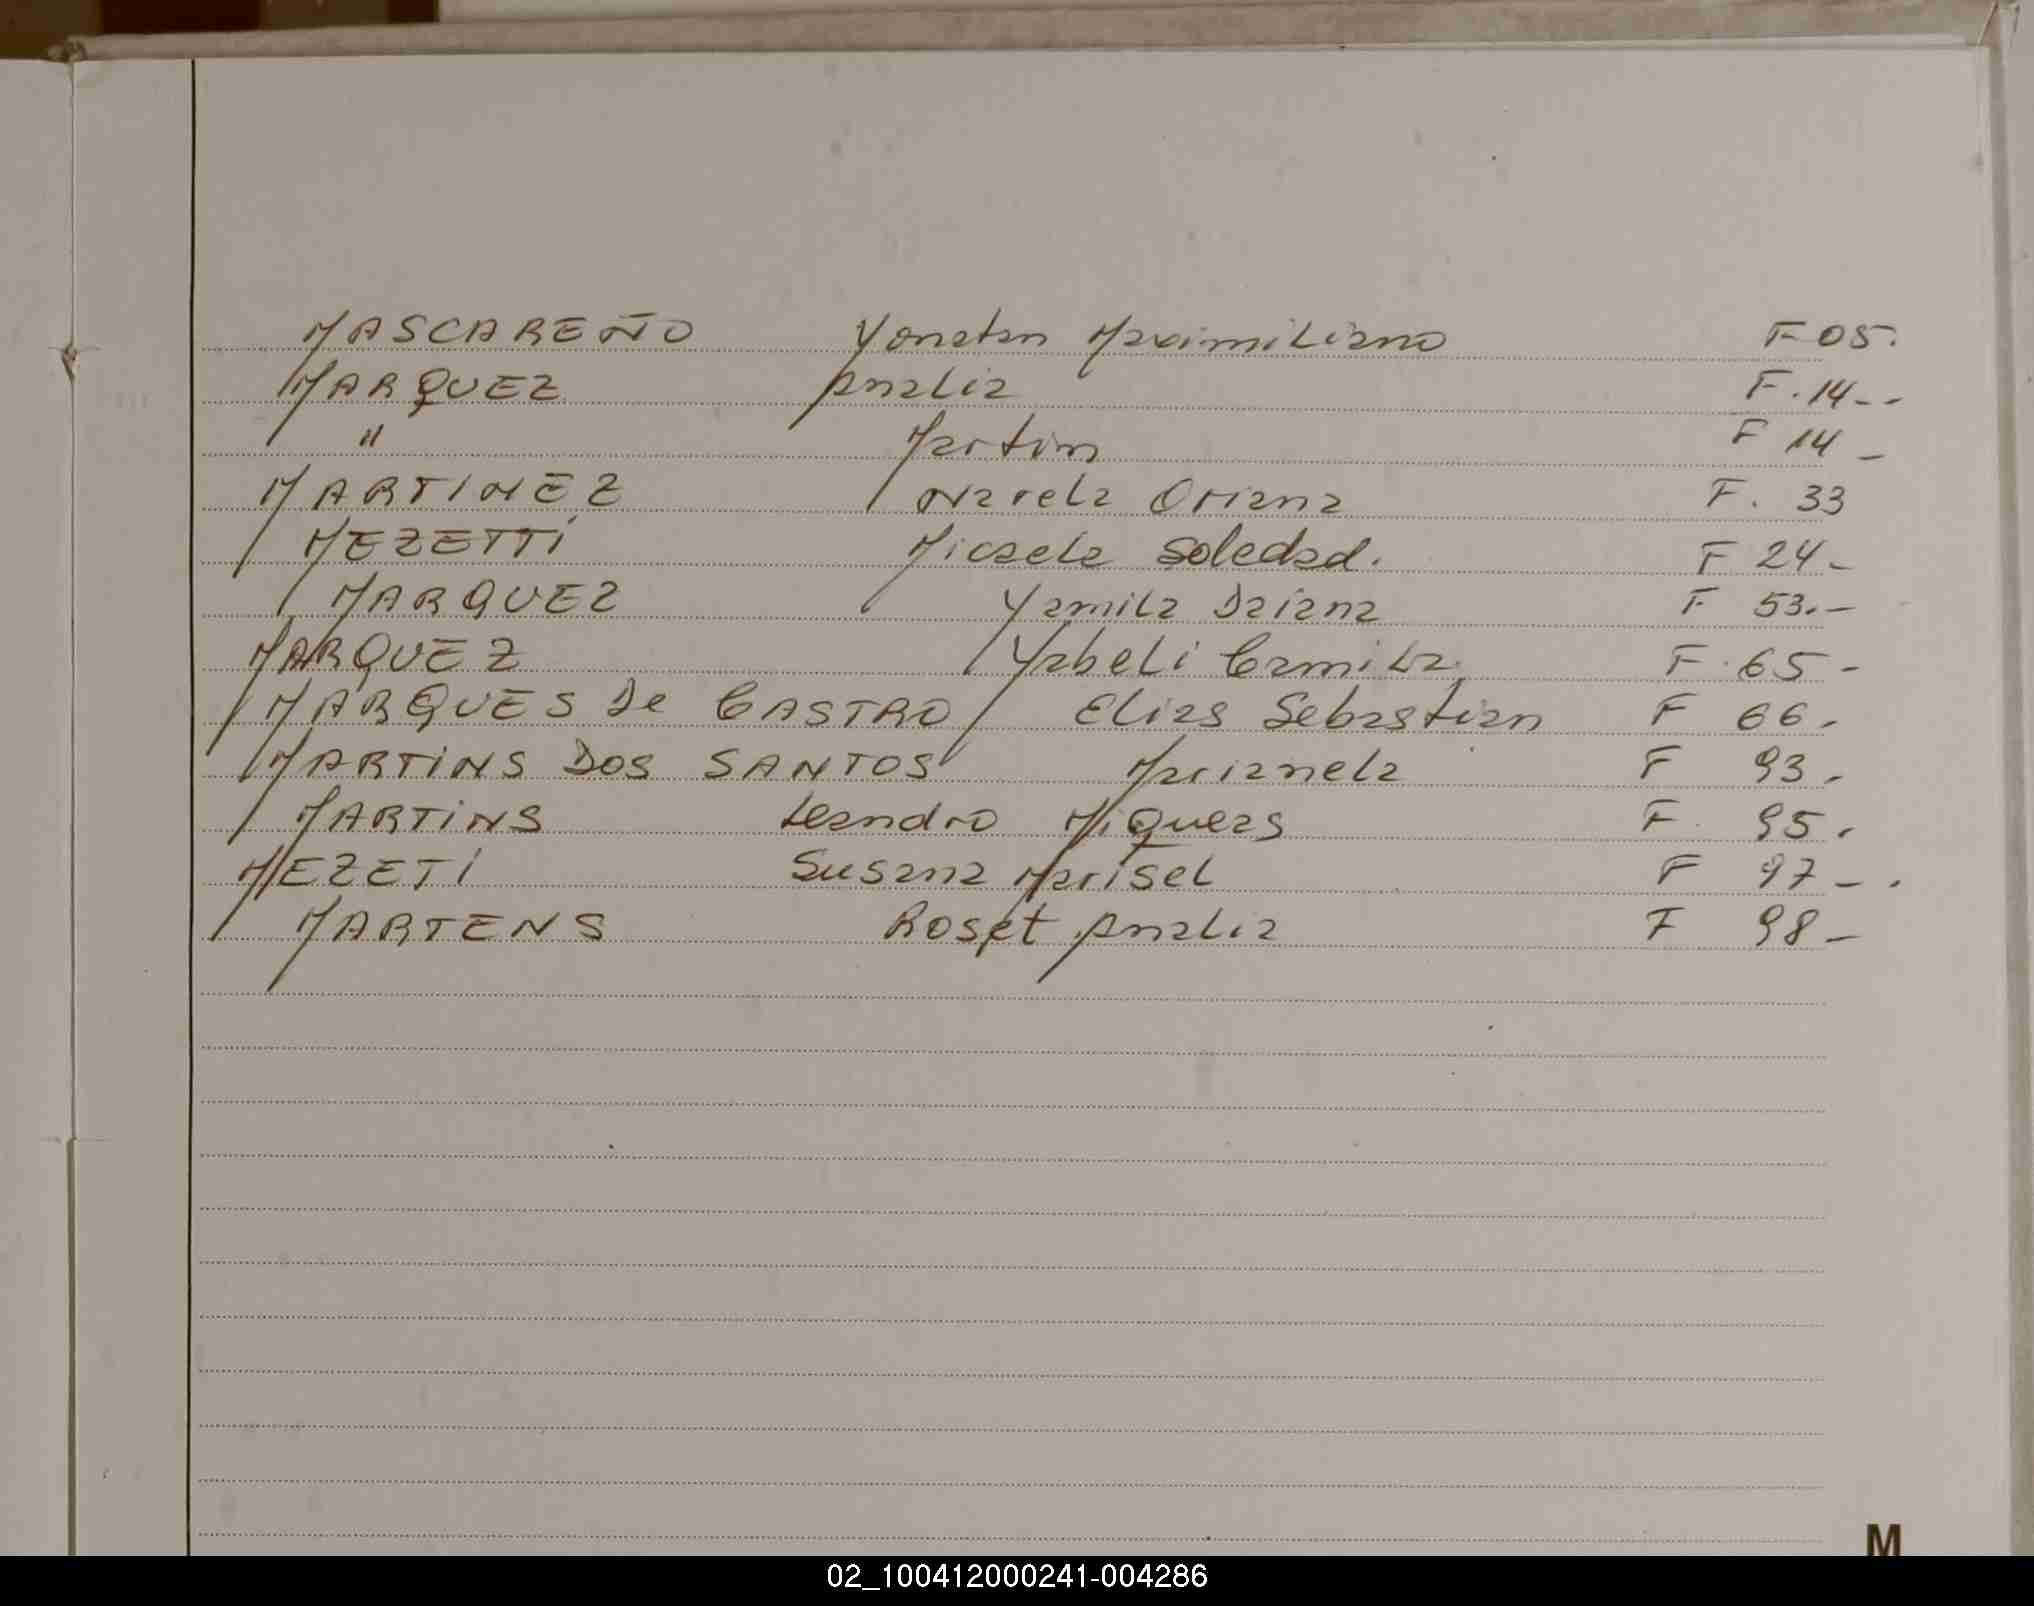 MASCAREÑO Yonatan Maximiliano F 05.
MARQUEZ Analia F. 14--
" Martin F 14 -
MARTINEZ Narela Oriana F. 33
MEZETTI Micaela Soledad. F 24-
MARQUEZ Yamila Daiana F 53.-
MARQUEZ Yabeli Camila F. 65-
MARQUES De CASTRO Elias Sebastian F 66.
MARTiNS DOS SANTOS Marianela F 93.
MARTiNS Leandro Miqueas F. 95.
MEZETi Susana Marisel F 97-.
MARTENS Roset Analia F 98-
M
02_100412000241-004286